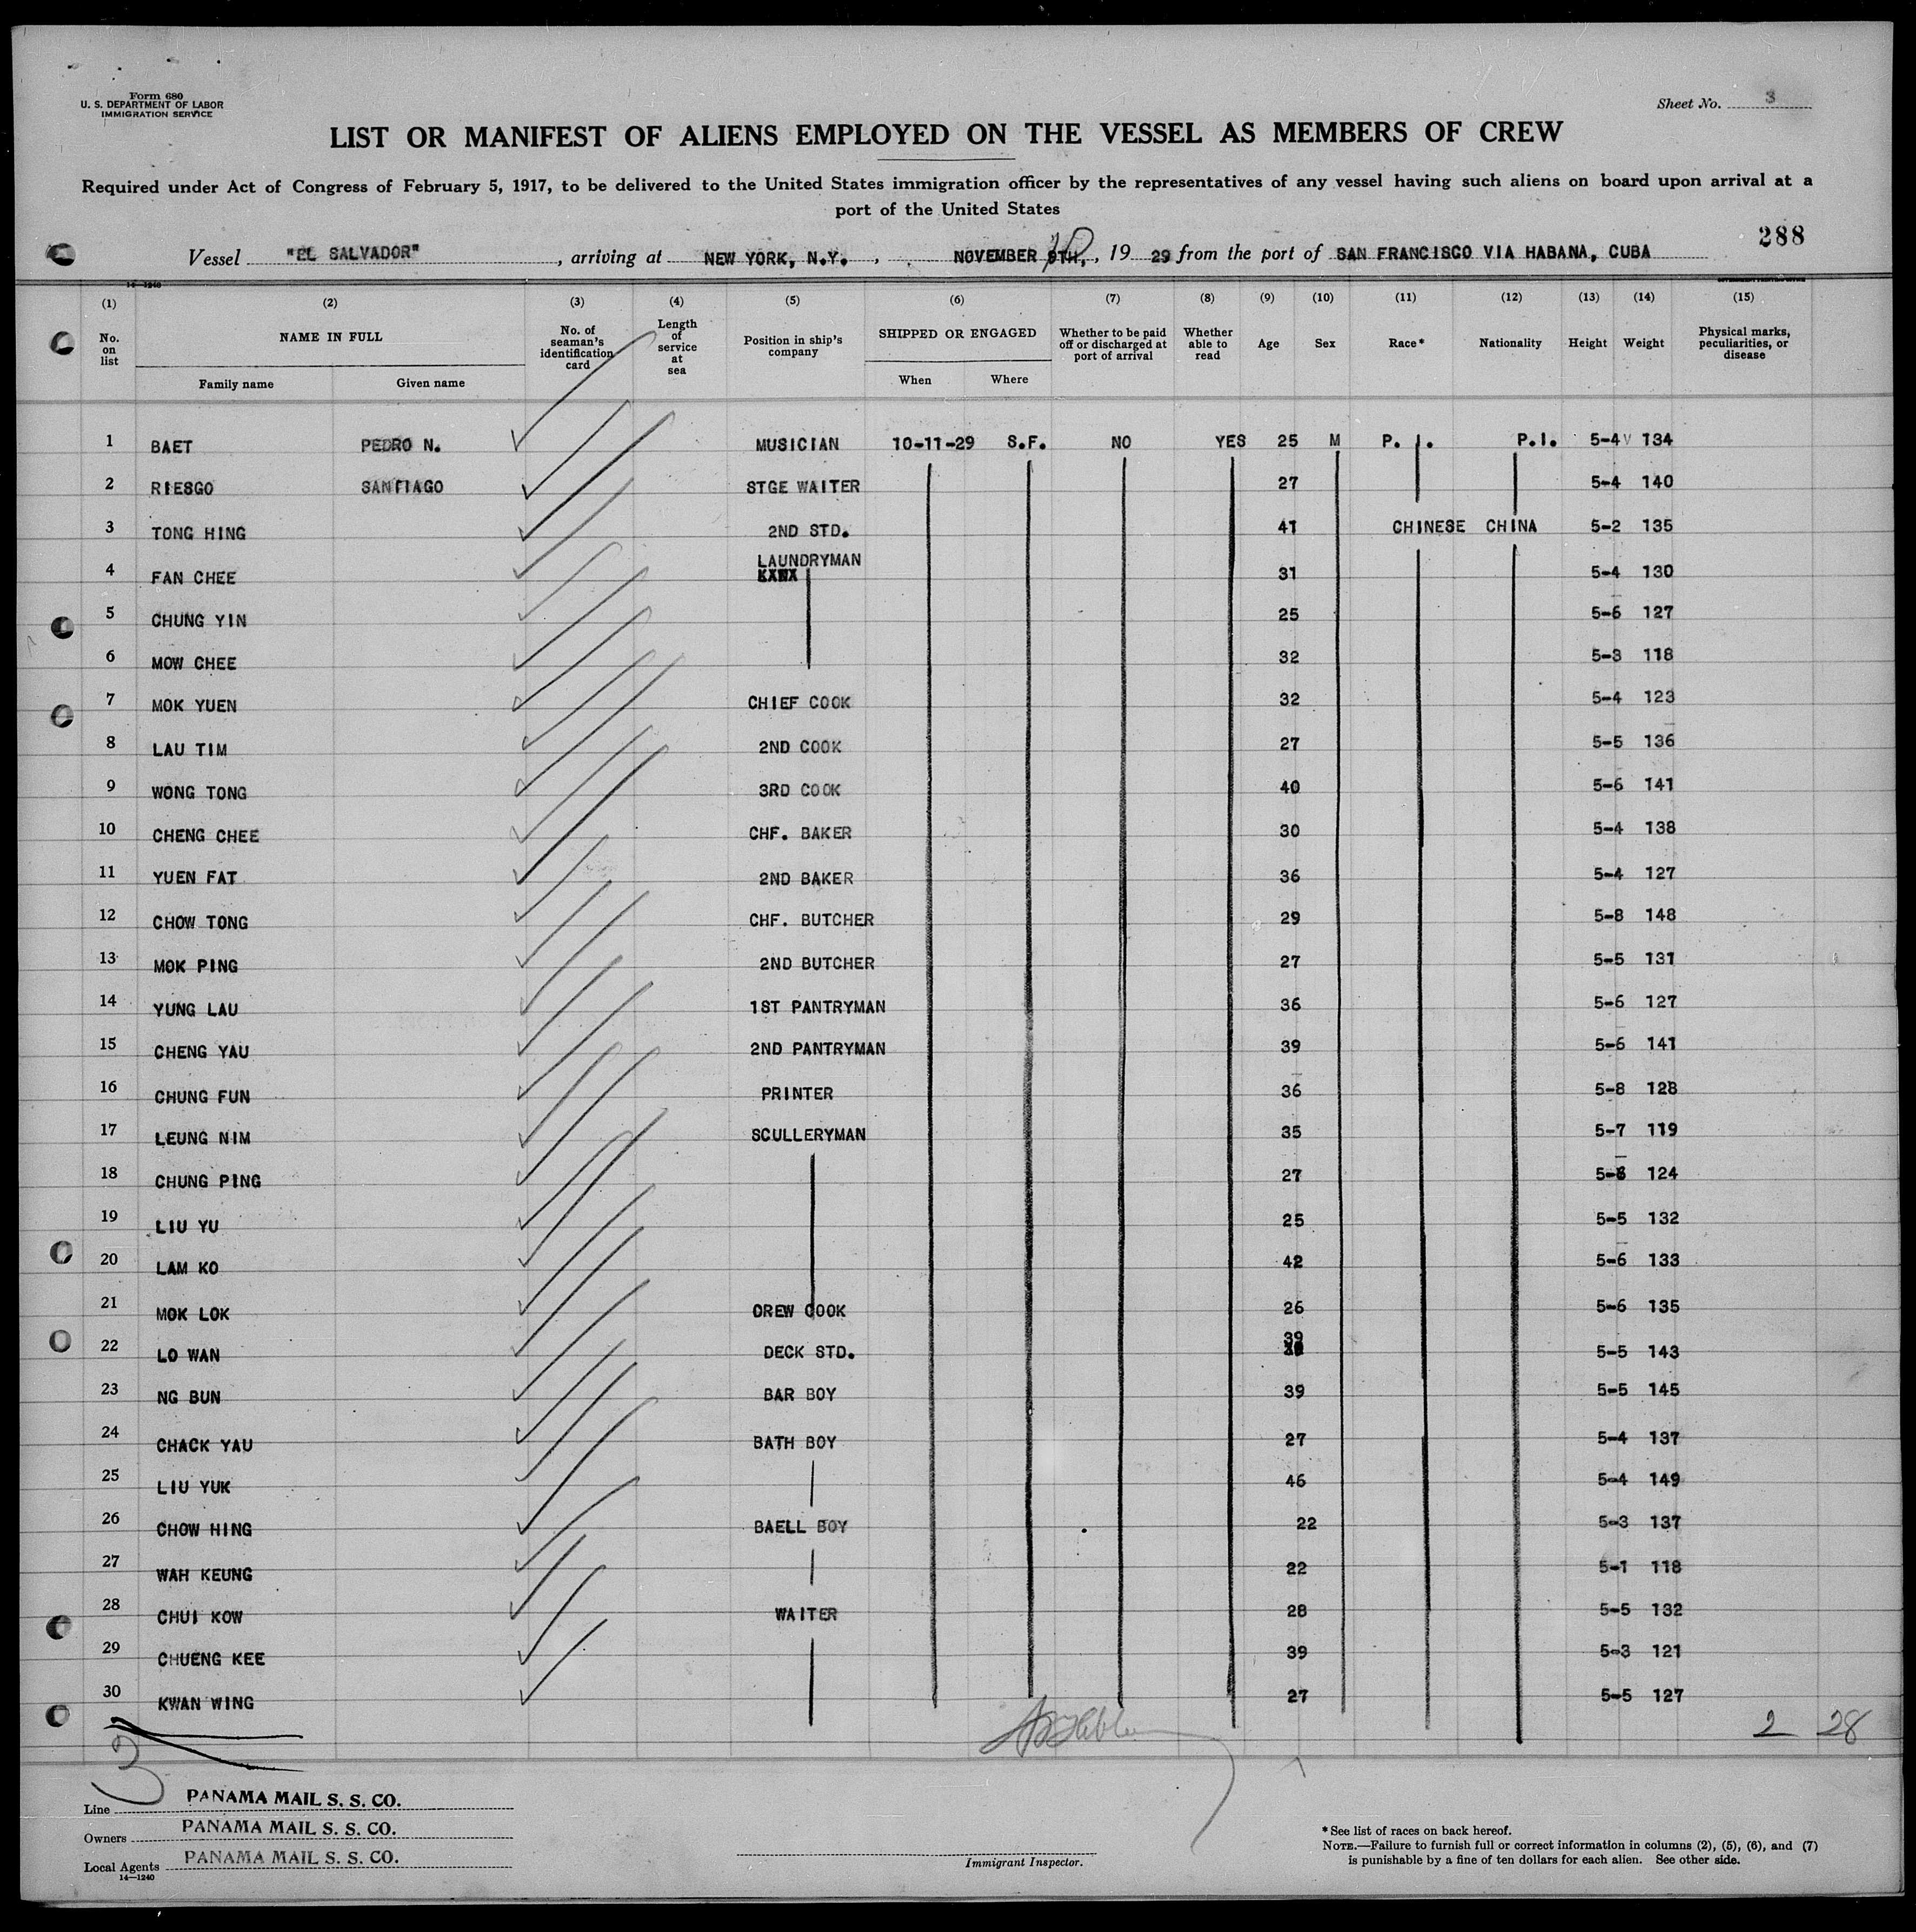 Form 680
U. S. DEPARTMENT OF LABOR
IMMIGRATION SERVICE
Sheet No. 3
LIST OR MANIFEST OF ALIENS EMPLOYED ON THE VESSEL AS MEMBERS OF CREW
Required under Act of Congress of February 5, 1917, to be delivered to the United States immigration officer by the representatives of any vessel having such aliens on board upon arrival at a
port of the United States
288
Vessel "EL SALVADOR" , arriving at NEW YORK, N.Y. , NOVEMBER 10 , 19 29 from the port of SAN FRANCISCO VIA HABANA, CUBA
14-1240
(1) (2) (3) (4) (5) (6) (7) (8) (9) (10) (11) (12) (13) (14) (15)
No. on list NAME IN FULL No. of seaman's identification card Length of service at sea Position in ship's company SHIPPED OR ENGAGED Whether to be paid off or discharged at port of arrival Whether able to read Age Sex Race* Nationality Height Weight Physical marks, peculiarities, or disease
Family name Given name When Where
1 BAET PEDRO N. MUSICIAN 10-11-29 S.F. NO YES 25 M P. I. P.I. 5-4 134
2 RIESGO SANTIAGO STGE WAITER 27 5-4 140
3 TONG HING 2ND STD. 41 CHINESE CHINA 5-2 135
4 FAN CHEE LAUNDRYMAN 31 5-4 130
5 CHUNG YIN 25 5-6 127
6 MOW CHEE 32 5-3 118
7 MOK YUEN CHIEF COOK 32 5-4 123
8 LAU TIM 2ND COOK 27 5-5 136
9 WONG TONG 3RD COOK 40 5-6 141
10 CHENG CHEE CHF. BAKER 30 5-4 138
11 YUEN FAT 2ND BAKER 36 5-4 127
12 CHOW TONG CHF. BUTCHER 29 5-8 148
13 MOK PING 2ND BUTCHER 27 5-5 131
14 YUNG LAU 1ST PANTRYMAN 36 5-6 127
15 CHENG YAU 2ND PANTRYMAN 39 5-6 141
16 CHUNG FUN PRINTER 36 5-8 128
17 LEUNG NIM SCULLERYMAN 35 5-7 119
18 CHUNG PING 27 124
19 LIU YU 25 5-5 132
20 LAM KO 42 5-6 133
21 MOK LOK CREW COOK 26 5-6 135
22 LO WAN DECK STD. 39 5-5 143
23 NG BUN BAR BOY 39 5-5 145
24 CHACK YAU BATH BOY 27 5-4 137
25 LIU YUK 46 5-4 149
26 CHOW HING BAELL BOY 22 5-3 137
27 WAH KEUNG 22 5-1 118
28 CHUI KOW WAITER 28 5-5 132
29 CHUENG KEE 39 5-3 121
30 KWAN WING 27 5-5 127
2 28
3
Line PANAMA MAIL S. S. CO.
Owners PANAMA MAIL S. S. CO.
Local Agents PANAMA MAIL S. S. CO.
14—1240
Immigrant Inspector.
*See list of races on back hereof.
NOTE.—Failure to furnish full or correct information in columns (2), (5), (6), and (7)
is punishable by a fine of ten dollars for each alien. See other side.